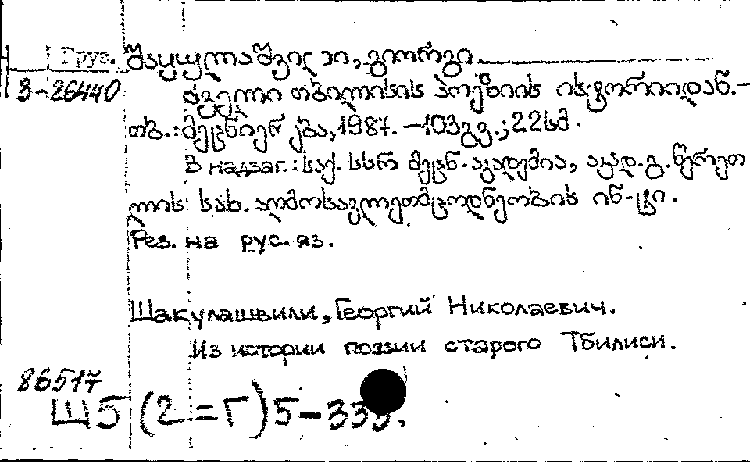 Груз. შაყულაშვილი, გიორგი.
В-26440 ძველი თბილისის პოეზიის ისტორიიდან.–
თბ.: მეცნიერება, 1987. – 103 გვ.; 22 სმ.
В надзаг.: საქ. სსრ მეცნ. აკადემია, აკად. გ. წერეთ
ლის სახ. აღმოსავლეთმცოდნეობის ინ-ტი.
Рез. на рус. яз.
Шакулашвили, Георгий Николаевич.
Из истории поэзии старого Тбилиси.
86517
Ш5(2=Г)5-335.